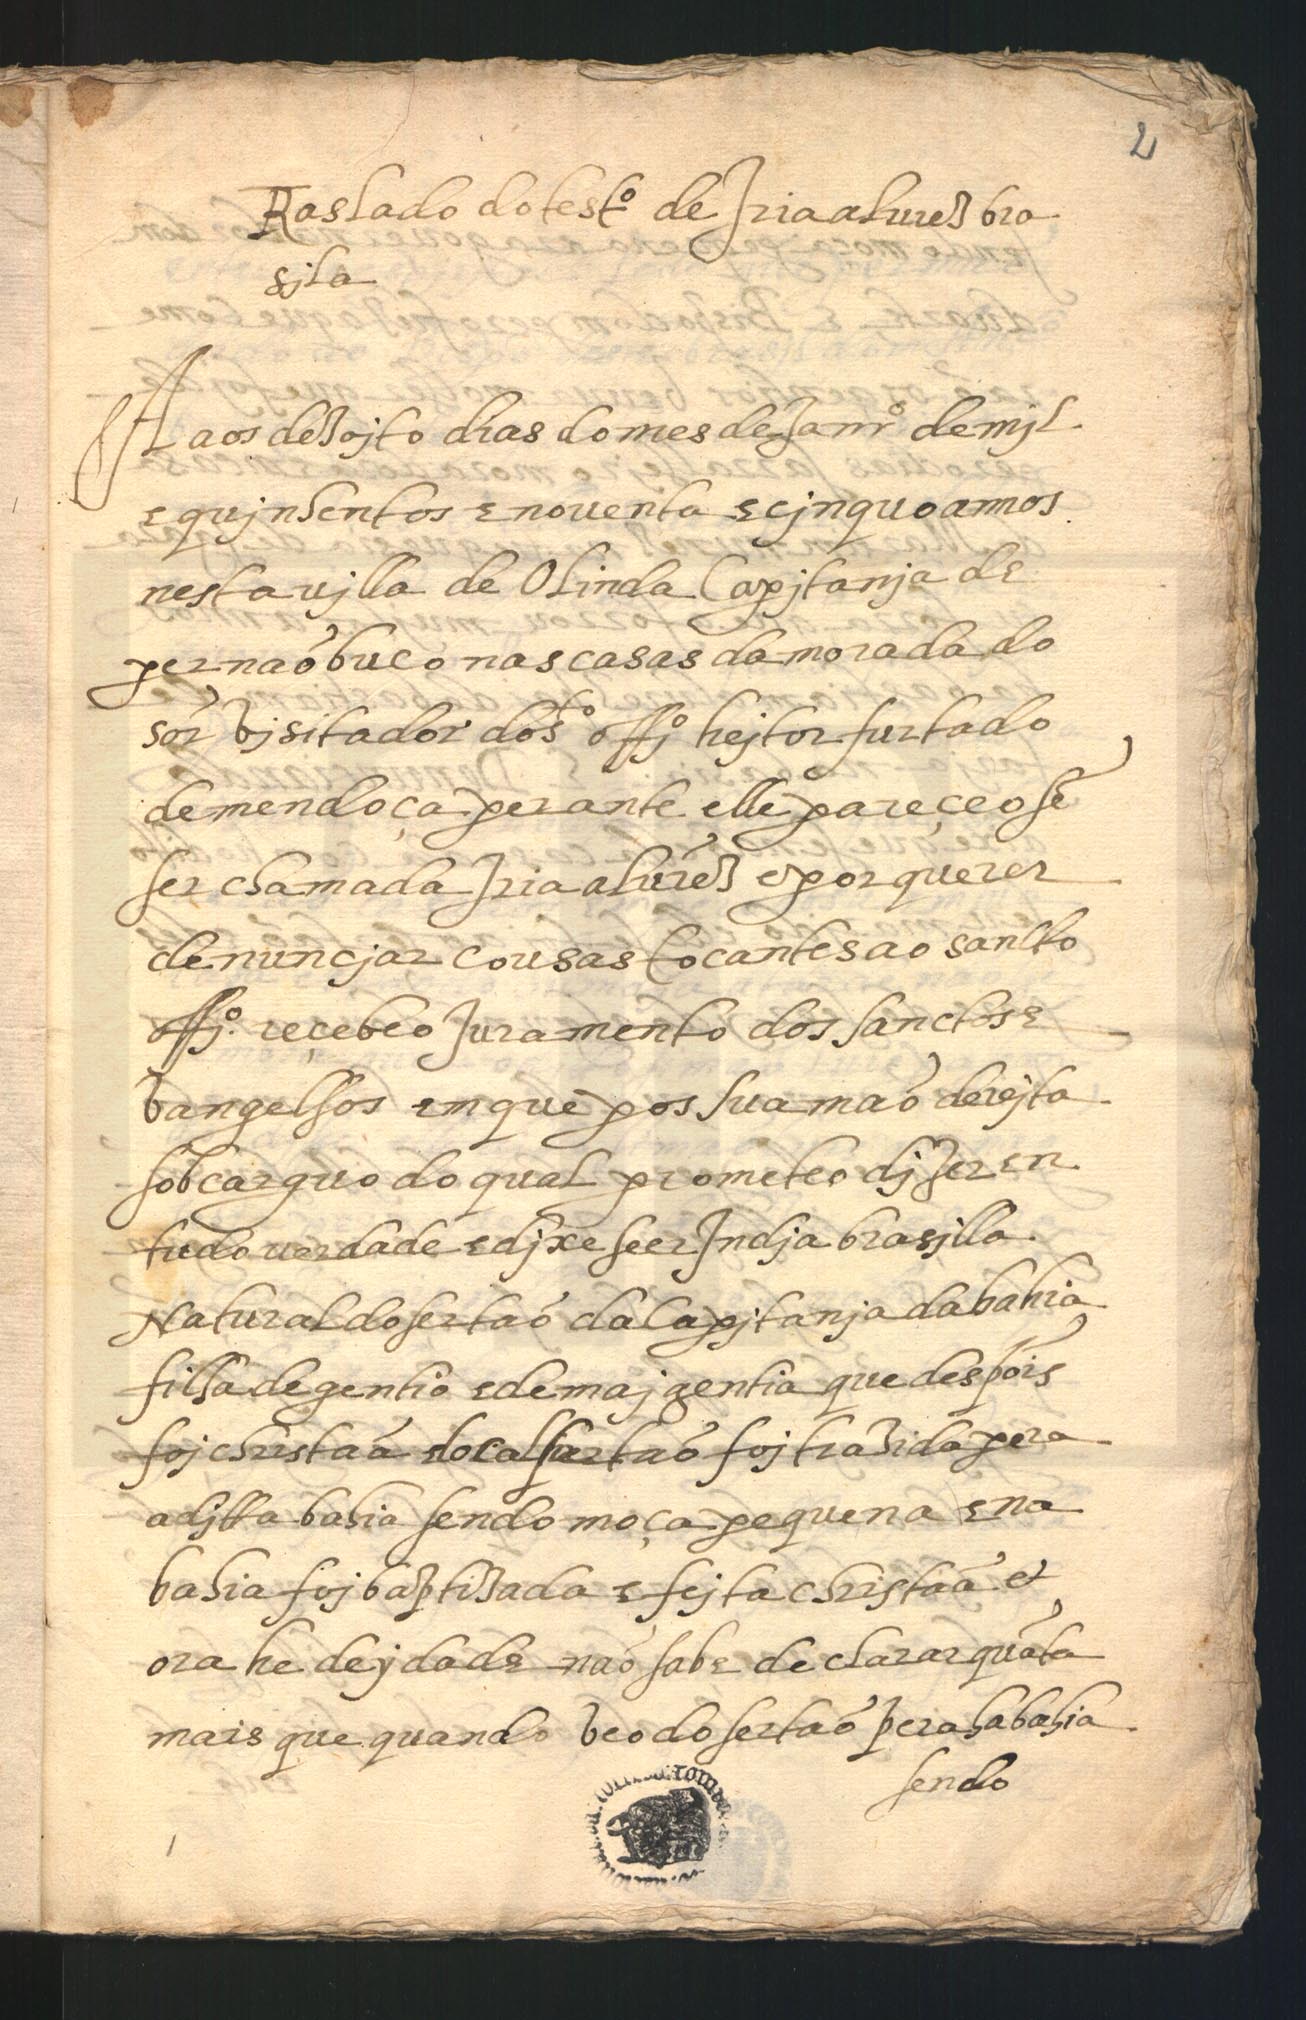 2
Raslado do test.º de Iria alurez bra
sila
Aos dezojto dias do mes de Janr.º de mjl
e quinhentos e nouenta e cjnquo annos
nesta ujlla de Olinda Capitanja de
pernaõbuco nas casas da morada do
sõr Visitador do s.to offj.º hejtor furtado
de mendoça perante elle pareçeo sẽ
ser chamada Iria alurez e por querer
denuncjar cousas tocantes ao sancto
offj.º reçebeo Juramento dos sanctos e
Vangelhos em que pos sua maõ derejta
sob carguo do qual prometeo djzer en
tudo uerdade e djxe seer Indja brasjlla
Natural do sertaõ da Capitanja da bahia
filha de gentio e de maj gentia que despois
foj christaã e do ttal sertaõ foj trazida pera
a djtta bahia sendo moça pequena e na
bahia foj baptizada e fejta christaã et
ora he de ydade naõ sabe declarar quãta
mais que quando Veo do sertaõ pera ha bahia
sendo